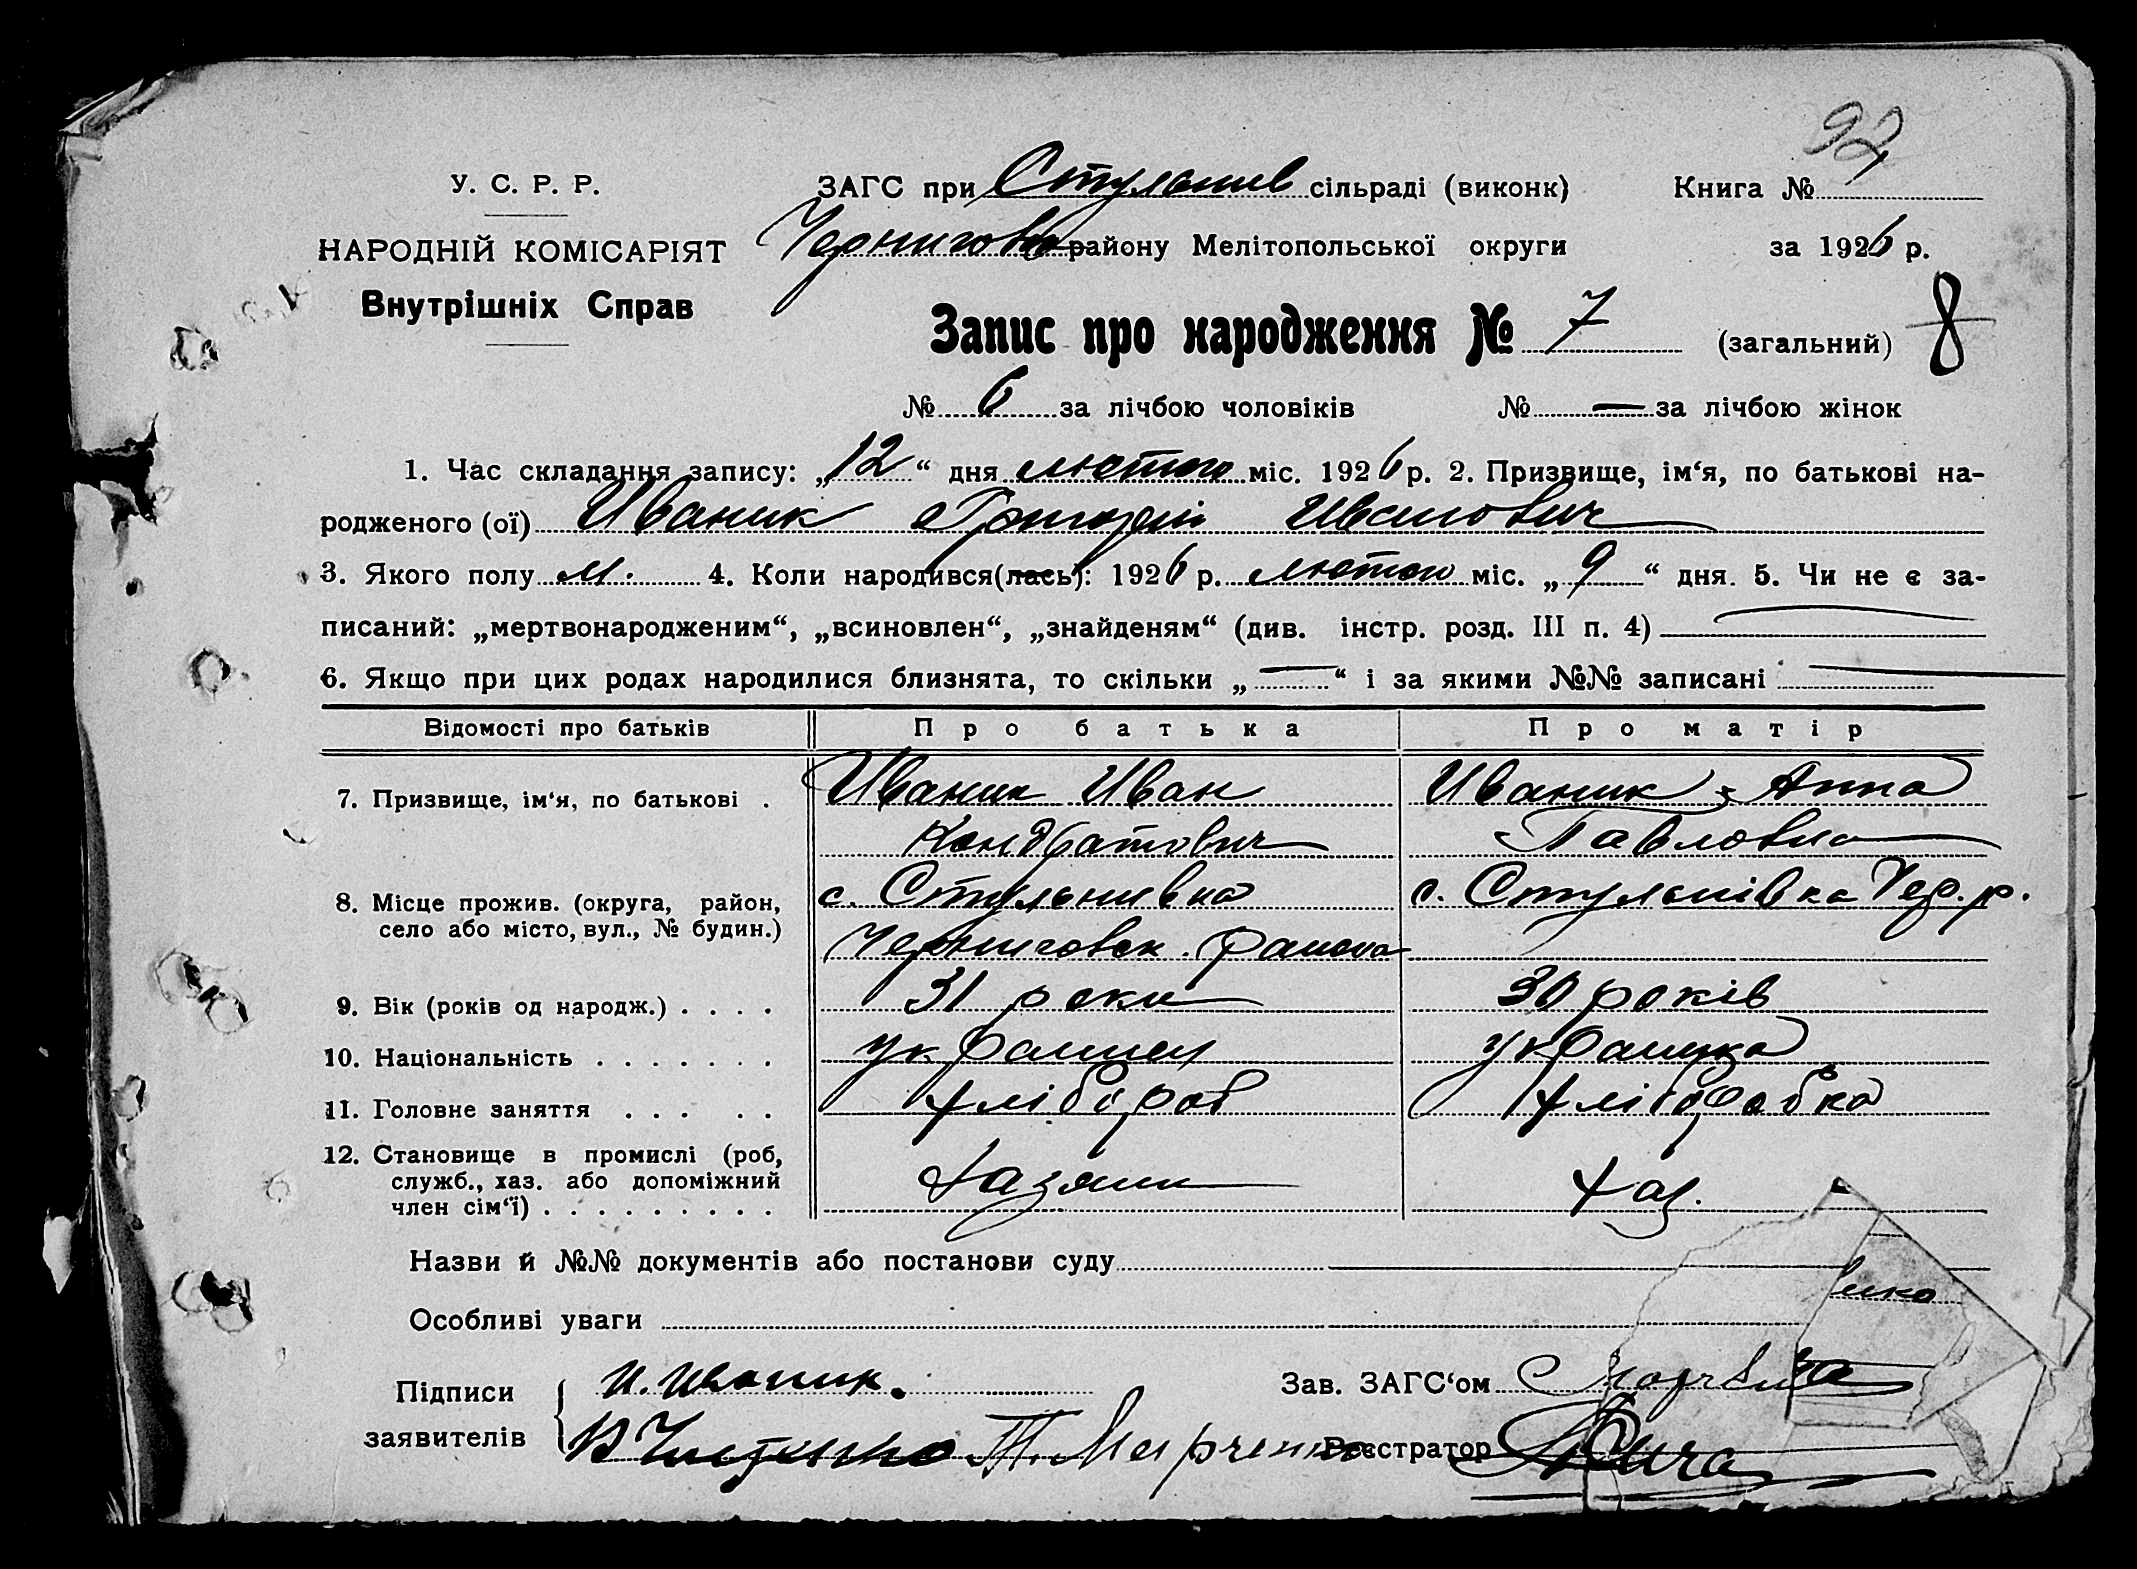 92
У. С. Р. Р.
ЗАГС при Стульнев сільраді (виконк)
Книга №
НАРОДНІЙ КОМІСАРІЯТ
Чернигов району Мелітопольської округи
за 1926 р.
Внутрішніх Справ
Запис про народження № 7 (загальний) 8
№ 6 за лічбою чоловіків № — за лічбою жінок
1. Час складання запису: „12“ дня лютого міс. 1926 р. 2. Призвище, ім‘я, по батькові на-
родженого (ої) Иваник Григорій Иванович
3. Якого полу м. 4. Коли народився(лась): 1926 р. лютого міс. „9“ дня. 5. Чи не є за-
писаний: „мертвонародженим“, „всиновлен“, „знайденям“ (див. інстр. розд. III п. 4) —
6. Якщо при цих родах народилися близнята, то скільки „—“ і за якими №№ записані —
Відомості про батьків Про батька Про матір
7. Призвище, ім‘я, по батькові . Иваник Иван Иваник Анна
Кондратович Павловна
8. Місце прожив. (округа, район, с. Стульнивка с. Стульнівка Чер. р.
село або місто, вул., № будин.)
Черниговск. района
9. Вік (років од народж.) . . . . 31 роки 30 років
10. Національність . . . . . . . украинец украинка
11. Головне заняття . . . . . хлібороб хліборобка
12. Становище в промислі (роб, хазяин хаз.
служб., хаз. або допоміжний
член сім‘ї) . . . . . . . . .
Назви й №№ документів або постанови суду
Особливі уваги
Підписи И. Иваник. Зав. ЗАГС‘ом
заявителів Т. Марченко Реєстратор